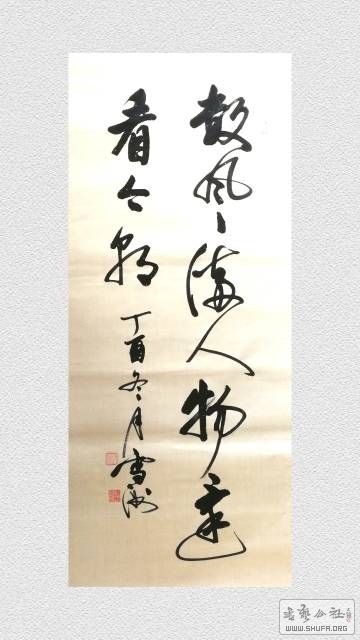 數風流人物還
看今朝
丁酉冬月雪
书艺公社
WWW.SHUFA.ORG